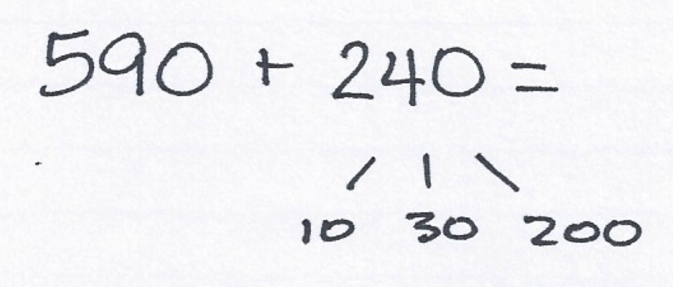 590 + 240 =
10 30 200